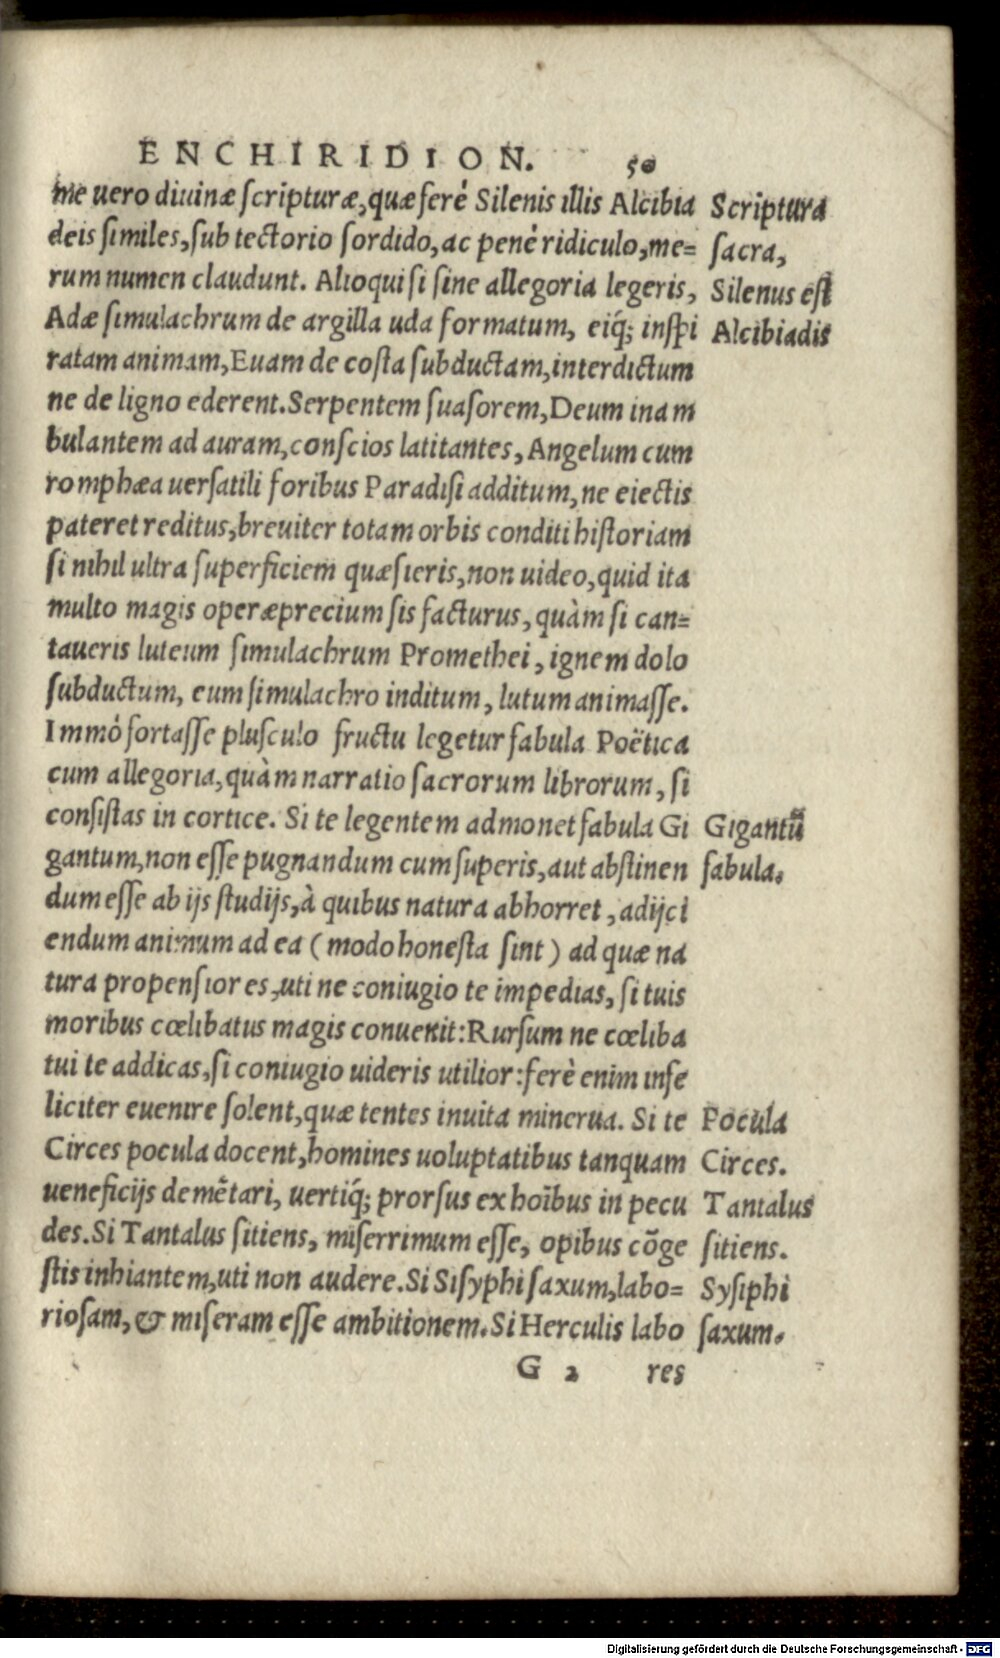 ENCHIRIDION. 50
me uero diuinæ scripturæ, quæ ferè Silenis illis Alcibia
deis similes, sub tectorio sordido, ac penè ridiculo, me=
rum numen claudunt. Alioqui si sine allegoria legeris,
Adæ simulachrum de argilla uda formatum, eiq́; inspi
ratam animam, Euam de costa subductam, interdictum
ne de ligno ederent. Serpentem suasorem, Deum inam
bulantem ad auram, conscios latitantes, Angelum cum
romphæa uersatili foribus Paradisi additum, ne eiectis
pateret reditus, breuiter totam orbis conditi historiam
si nihil ultra superficiem quæsieris, non uideo, quid ita
multo magis operæprecium sis facturus, quàm si can=
taueris luteum simulachrum Promethei, ignem dolo
subductum, eum simulachro inditum, lutum animasse.
Immò fortasse plusculo fructu legetur fabula Poëtica
cum allegoria, quàm narratio sacrorum librorum, si
consistas in cortice. Si te legentem admonet fabula Gi
gantum, non esse pugnandum cum superis, aut abstinen
dum esse ab ijs studijs, à quibus natura abhorret, adijci
endum animum ad ea (modo honesta sint) ad quæ na
tura propensior es, uti ne coniugio te impedias, si tuis
moribus cœlibatus magis conuenit: Rursum ne cœliba
tui te addicas, si coniugio uideris utilior: ferè enim infe
liciter euenire solent, quæ tentes inuita minerua. Si te
Circes pocula docent, homines uoluptatibus tanquam
ueneficijs demētari, uertiq́; prorsus ex hoībus in pecu
des. Si Tantalus sitiens, miserrimum esse, opibus cōge
stis inhiantem, uti non audere. Si Sisyphi saxum, labo=
riosam, & miseram esse ambitionem. Si Herculis labo
G 2 res
Scriptura
sacra,
Silenus est
Alcibiadis
Gigantū
fabula.
Pocula
Circes.
Tantalus
sitiens.
Sysiphi
saxum.
Digitalisierung gefördert durch die Deutsche Forschungsgemeinschaft - DFG